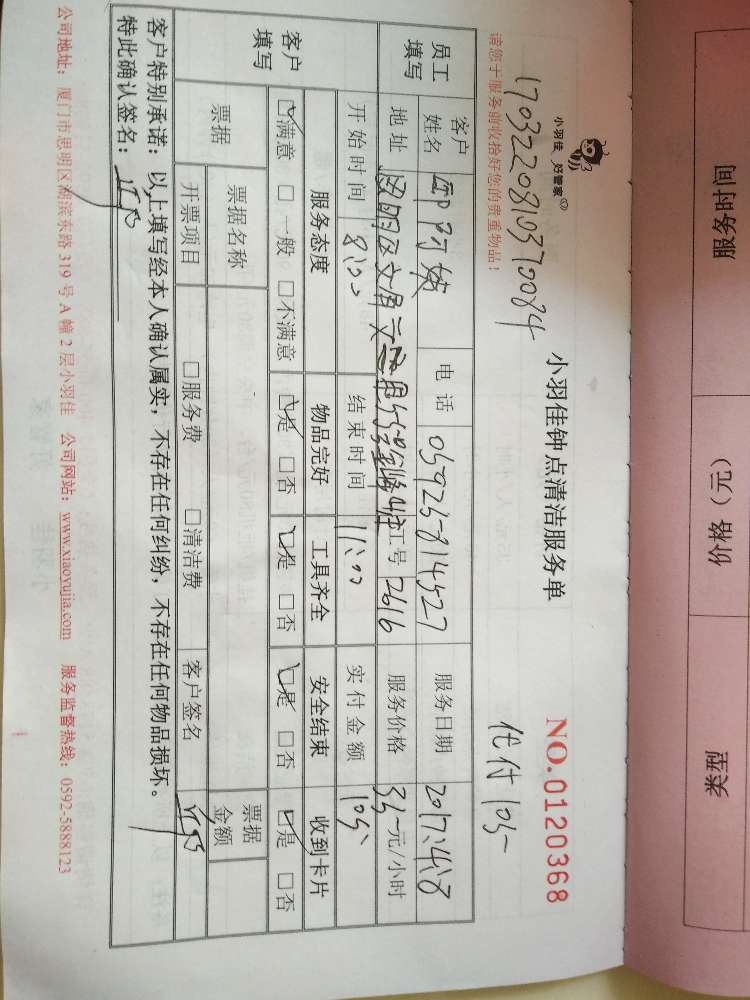 服务时间 价格（元） 类型
小羽佳 好管家
17032208103700084
小羽佳钟点清洁服务单
NO.0120368
请您于服务前收拾好您的贵重物品！
代付105-
员工填写
客户姓名 电话 服务日期 2017.4.8
地址 工号 2616 服务价格 35元/小时
开始时间 8:00 结束时间 11:00 实付金额 105
客户填写
服务态度 物品完好 工具齐全 安全结束 收到卡片
☑满意 □一般 □不满意 ☑是 □否 ☑是 □否 ☑是 □否 ☑是 □否
票据
票据名称 票据金额
开票项目 □服务费 □清洁费 客户签名
客户特别承诺：以上填写经本人确认属实，不存在任何纠纷，不存在任何物品损坏。
特此确认签名：
公司地址：厦门市思明区湖滨东路319号A幢2层小羽佳 公司网站：www.xiaoyujia.com 服务监督热线：0592-5888123